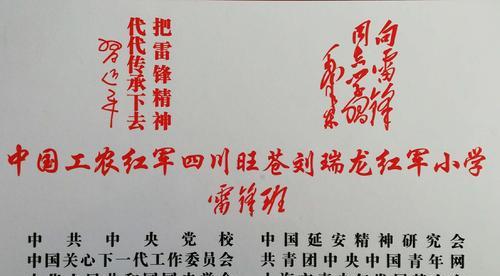 把雷锋精神
代代传承下去
习近平
向雷锋
同志学习
毛泽东
中国工农红军四川旺苍刘瑞龙红军小学
雷锋班
中共中央党校
中国延安精神研究会
中国关心下一代工作委员会
共青团中央中国青年网